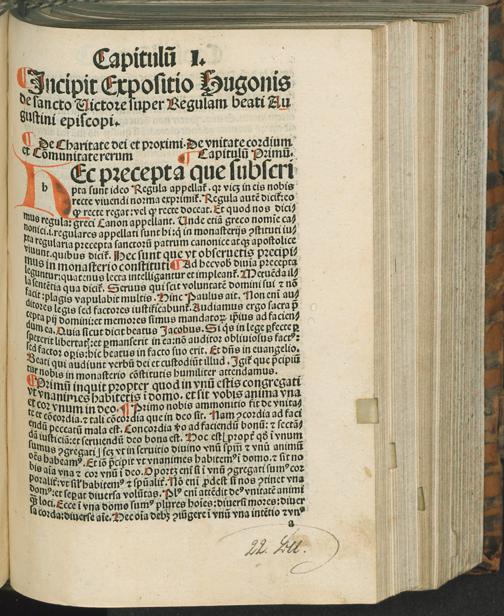 Capitulū I.
¶Incipit Expositio Hugonis
de sancto Victore super Regulam beati Au
gustini episcopi.
¶ De Charitate dei et proximi. De vnitate cordium
et Cōmunitate rerum ¶ Capitulū Primū.
HEc precepta que subscri
b
pta sunt ideo Regula appellat᷑. qꝛ viꝫ in eis nobis
recte viuendi norma exprimit᷑. Regula autē dicit᷑: eo
ꝙ recte regat: vel ꝙ recte doceat. Et quod nos dici
mus regulā: greci Canon appellant. Unde etiā greco nomie ca
nonici. i. regulares appellati sunt hi: q̇ in monasterijs ꝯstituti iu
xta regularia precepta sanctorū patrum canonice atqꝫ apostolice
viuunt. quibus dicit᷑. Hec sunt que vt obseruetis precipi
mus in monasterio constituti ¶ Ad hec vob̄ diuīa precepta
leguntur: qua tenus lecta intelligantur et impleant᷑.
la sententia qua dicit᷑. Seruus qui scit voluntatē domini sui ⁊ nō
facit: plagis vapulabit multis. Hinc Paulus ait. Non eni au
ditores legis sed factores iustificabunt᷑. Audiamus ergo sacra p̄
cepta
dum ea. Quia sicut dicit beatus Jacobus. Si q̇s in lege ꝑfecte
spexerit libertat᷑: et ꝑmanserit in ea: nō auditor obliuiosus fact᷒:
sed factor opis: hic beatus in facto suo erit. Et dn̄s in euangelio.
Beati qui audiunt verbū dei et custodiūt illud. Igit᷑ que p̄cipiū
tur nobis in monasterio cōstitutis humiliter attendamus.
¶Primū inquit propter quod in vnū estis congregati
vt vnanimes habitetis in domo. et sit vobis anima vna
et cor vnum in deo. ¶ Primo nobis ammonitio fit de vnita
te et cōcordia. ⁊ tali cōcordia que in deo sit. Nam ꝯcordia ad faci
endū peccatū mala est. Concordia vo ad faciendū bonū: ⁊ sectā
dā iusticiā: et seruiendū deo bona est. Hoc est ꝓpt
sumus ꝯgregati vt in seruitio diuino vnū spm̄ ⁊ vnū animū
oēs habeam᷒. Et iō p̄cipit vt vnanimes habitem᷒ in domo. ⁊ sit no
bis aīa vna ⁊ cor vnū in deo. Oportꝫ eni si in vnū ꝯgregati sum᷒ cor
poralit᷑: vt sil᷑ habitem᷒ ⁊ spūalit᷑. Nō eni ꝓdest si nos ꝯtinet vna
dom᷒: et separat diuersa volūtas. Pl᷒ eni attēdit de᷒ vnitatē animi
ꝙ̄ loci. Ecce in vna domo sum᷒ plures hoies: diuersi mores: diuer
sa corda: diuerse aīe. Hec oīa debꝫ ꝯiūgere in vnū vna intētio ⁊ vn᷒
a
22. Bll.